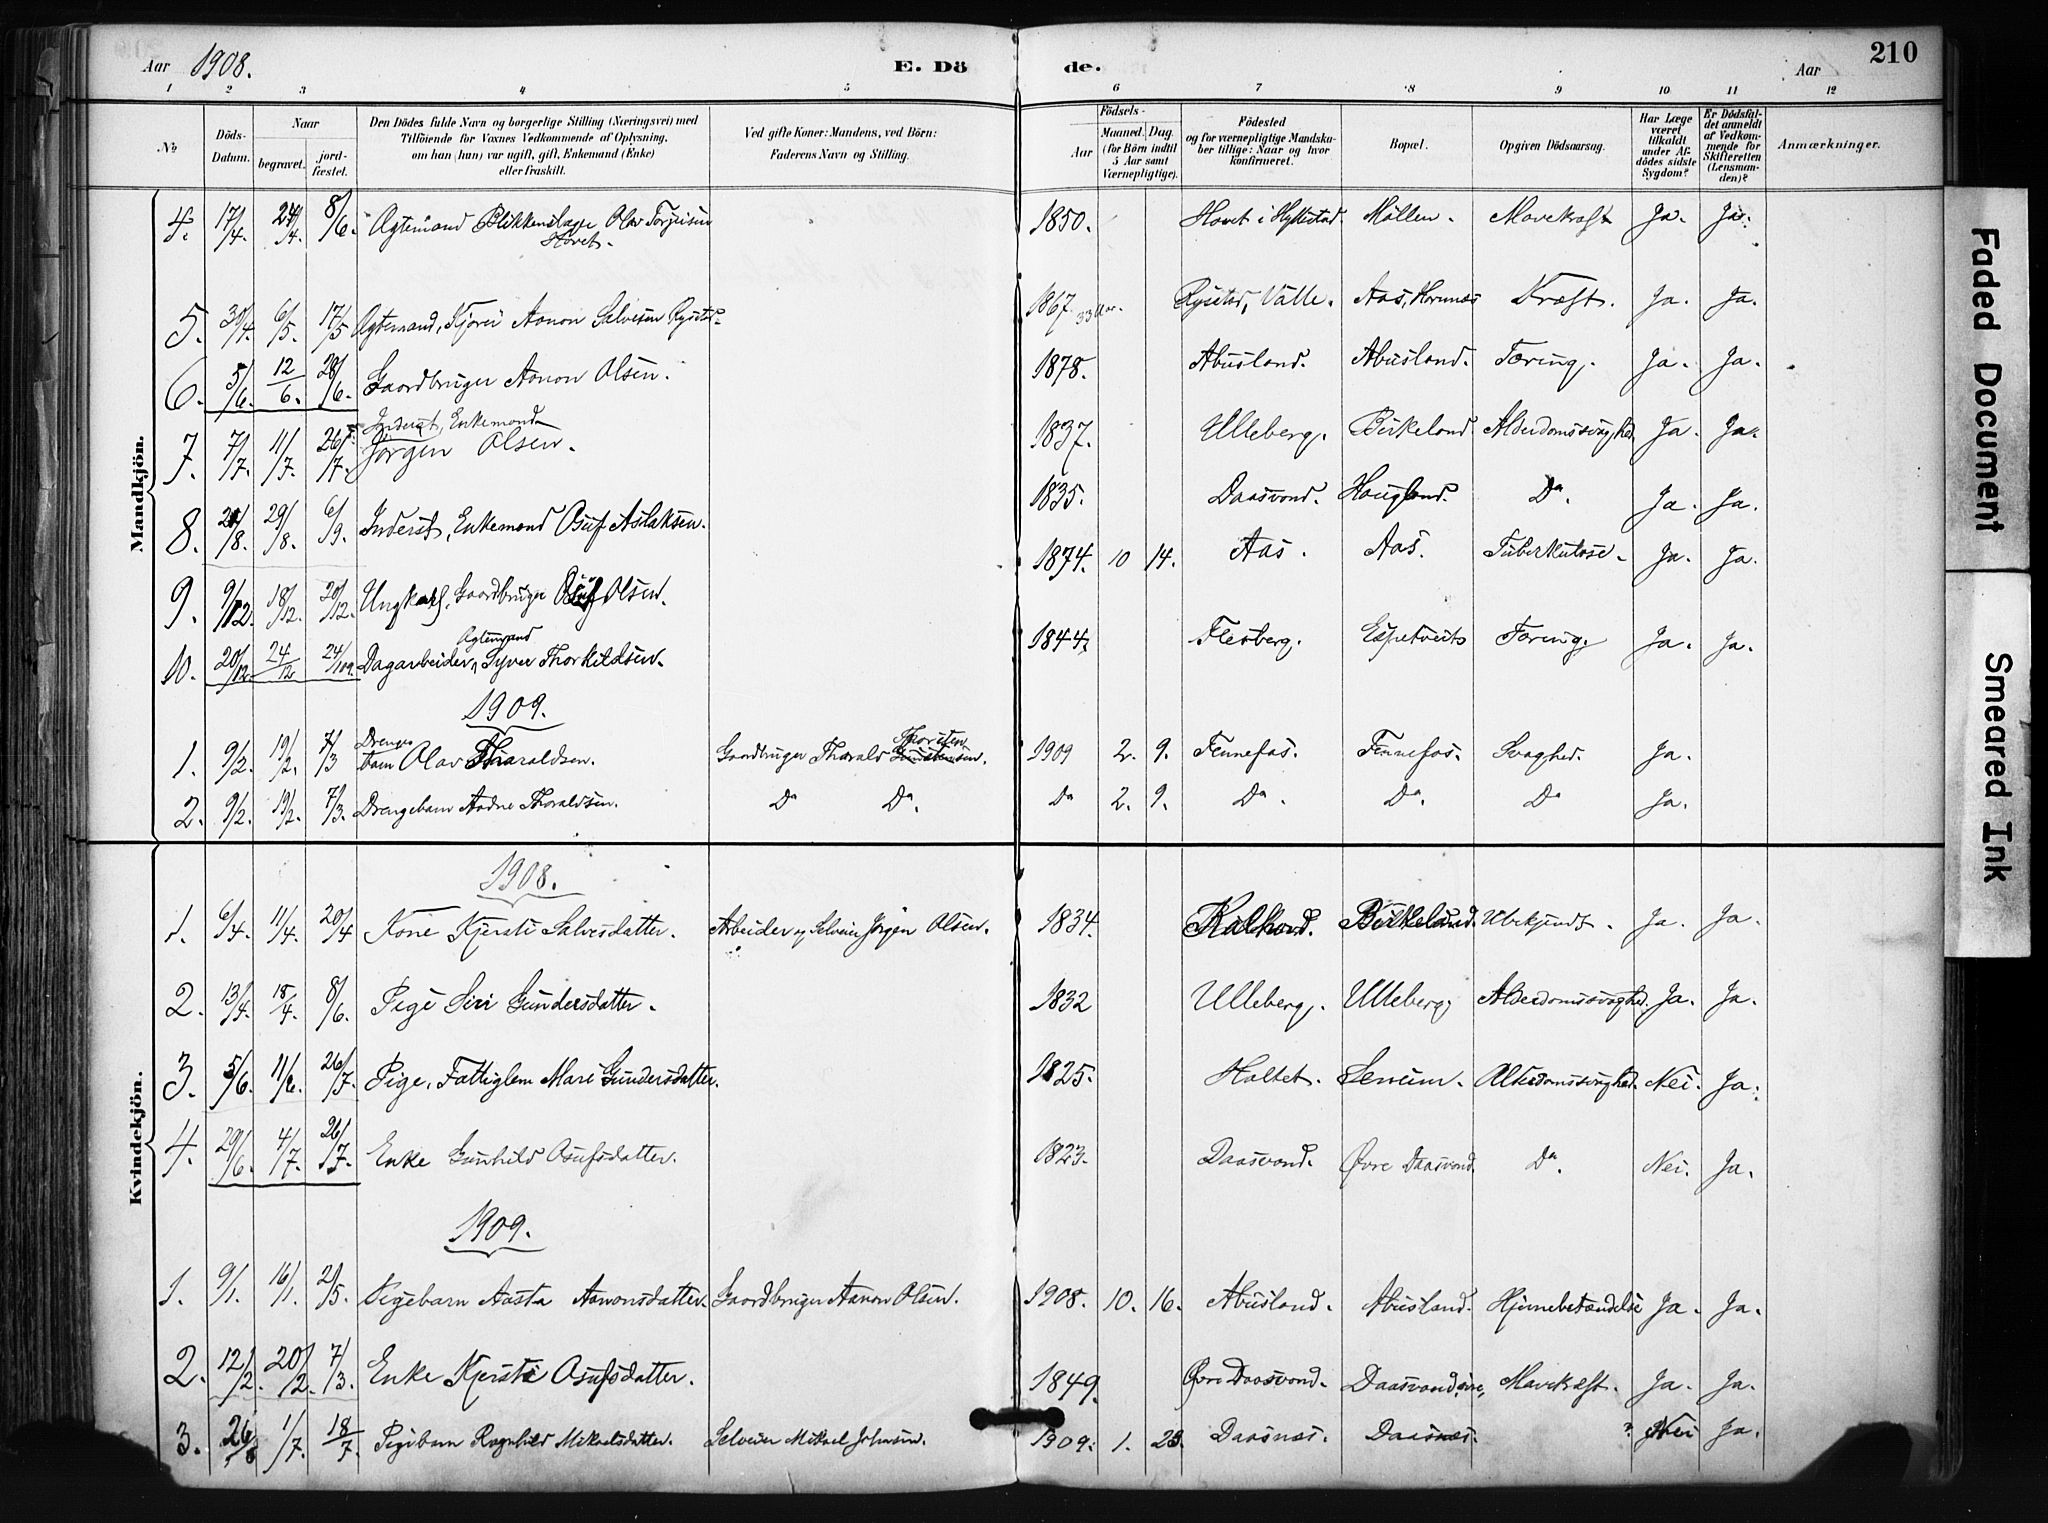 Aar 1908. E. Dö de. Aar 210
1 2 3 4 5 6 7 8 9 10 11 12
No
Döds-Datum.
Naar
begravet.
jord-fæstet.
Den Dödes fulde Navn og borgerlige Stilling (Næringsvei) med
Tilföiende for Voxnes Vedkommende af Oplysning,
om han (hun) var ugift, gift, Enkemand (Enke)
eller fraskilt.
Ved gifte Koner: Mandens, ved Börn:
Faderens Navn og Stilling.
Födsels-
Aar
Maaned. Dag.
(for Börn indtil
5 Aar samt
Værnepligtige).
Födested
og for værnepligtige Mandska-
ber tillige: Naar og hvor
konfirmeret.
Bopæl.
Opgiven Dödsaarsag.
Har Læge
været
tilkaldt
under Af-
dödes sidste
Sygdom?
Er Dödsfal-
det anmeldt
af Vedkom-
mende for
Skifteretten
(Lensman-
den)?
Anmærkninger.
Mandkjön.
4. 17/4. 24/4. 8/6. Ægtemand Blikkenslager Olav Torjusen Hovet. 1850. Hovet i Hyllestad Möllen. Mavekræft Ja. Ja.
5. 30/4. 6/5. 17/5 Ægtemand, Aanon Salvesen Rystad 1867. Rystad, Valle. Aas, Hornnes Kræft. Ja. Ja.
6. 5/6. 12/6. 28/6. Gaardbruger Aanon Olsen. 1878. Abusland. Abusland. Tæring. Ja. Ja.
7. 7/7. 11/7. 26/7. Inderst, Enkemand Jørgen Olsen. 1837. Ulleberg. Birkeland. Alderdomssvaghed Ja. Ja.
8. 21/8. 29/8. 6/9. Inderst, Enkemand Osuf Aslaksen. 1835. Daasvand. Haugland. Da. Ja. Ja.
9. 9/12. 18/12. 20/12. Ungkarl, Gaardbruger Osuf Olsen. 1874. 10 14. Aas. Aas. Tuberkulose. Ja. Ja.
10. 20/12. 24/12 24/1 09. Dagarbeider, Ægtemand Syver Thorkildsen. 1844. Flesberg. Espetveit Tæring. Ja. Ja.
1909.
1. 9/2. 19/2. 7/3 Drengebarn Olav Tharaldsen. Gaardbruger Tharald Thorsten 1909 2. 9. Fennefos. Fennefos. Svaghed. Ja.
2. 9/2. 19/2. 7/3. Drengebarn Aadne Tharaldsen. Da Da. Da 2. 9. Da. Da. Da Ja.
Kvindekjön.
1908.
1. 6/4. 11/4. 20/4 Kone Kjersti Salvesdatter. Arbeider og Selveier Jörgen Olsen. 1834. Birkeland. Ubekjendt. Ja. Ja.
2. 13/4. 18/4. 8/6. Pige Siri Gundersdatter. 1832 Ulleberg. Ulleberg, Alderdomssvaghed. Ja. Ja.
3. 5/6. 11/6. 26/7. Pige, Fattiglem Mari Gundersdatter. 1825. Haltet. Senum. Alderdomssvaghed. Nei. Ja.
4. 29/6. 4/7. 26/7. Enke Gunhild Osufsdatter. 1823. Daasvand. Øvre Daasvand. Da. Nei. Ja.
1909.
1. 9/1. 16/1. 2/5. Pigebarn Aasta Aanonsdatter. Gaardbruger Aanon Olsen. 1908. 10. 16. Abusland. Abusland. Hjernebetændelse Ja. Ja.
2. 12/2. 20/2. 7/3. Enke Kjersti Osufsdatter. 1849. Øvre Daasvand. Daasvand, øvre, Mavekræft. Ja. Ja.
3. 26/6 1/7. 18/7. Pigebarn Ragnhild Mikaelsdatter. Selveier Mikael Johnsen. 1909. 1. 23. Daasnes. Daasnes. ? Nei Ja.
Faded Document
Smeared Ink